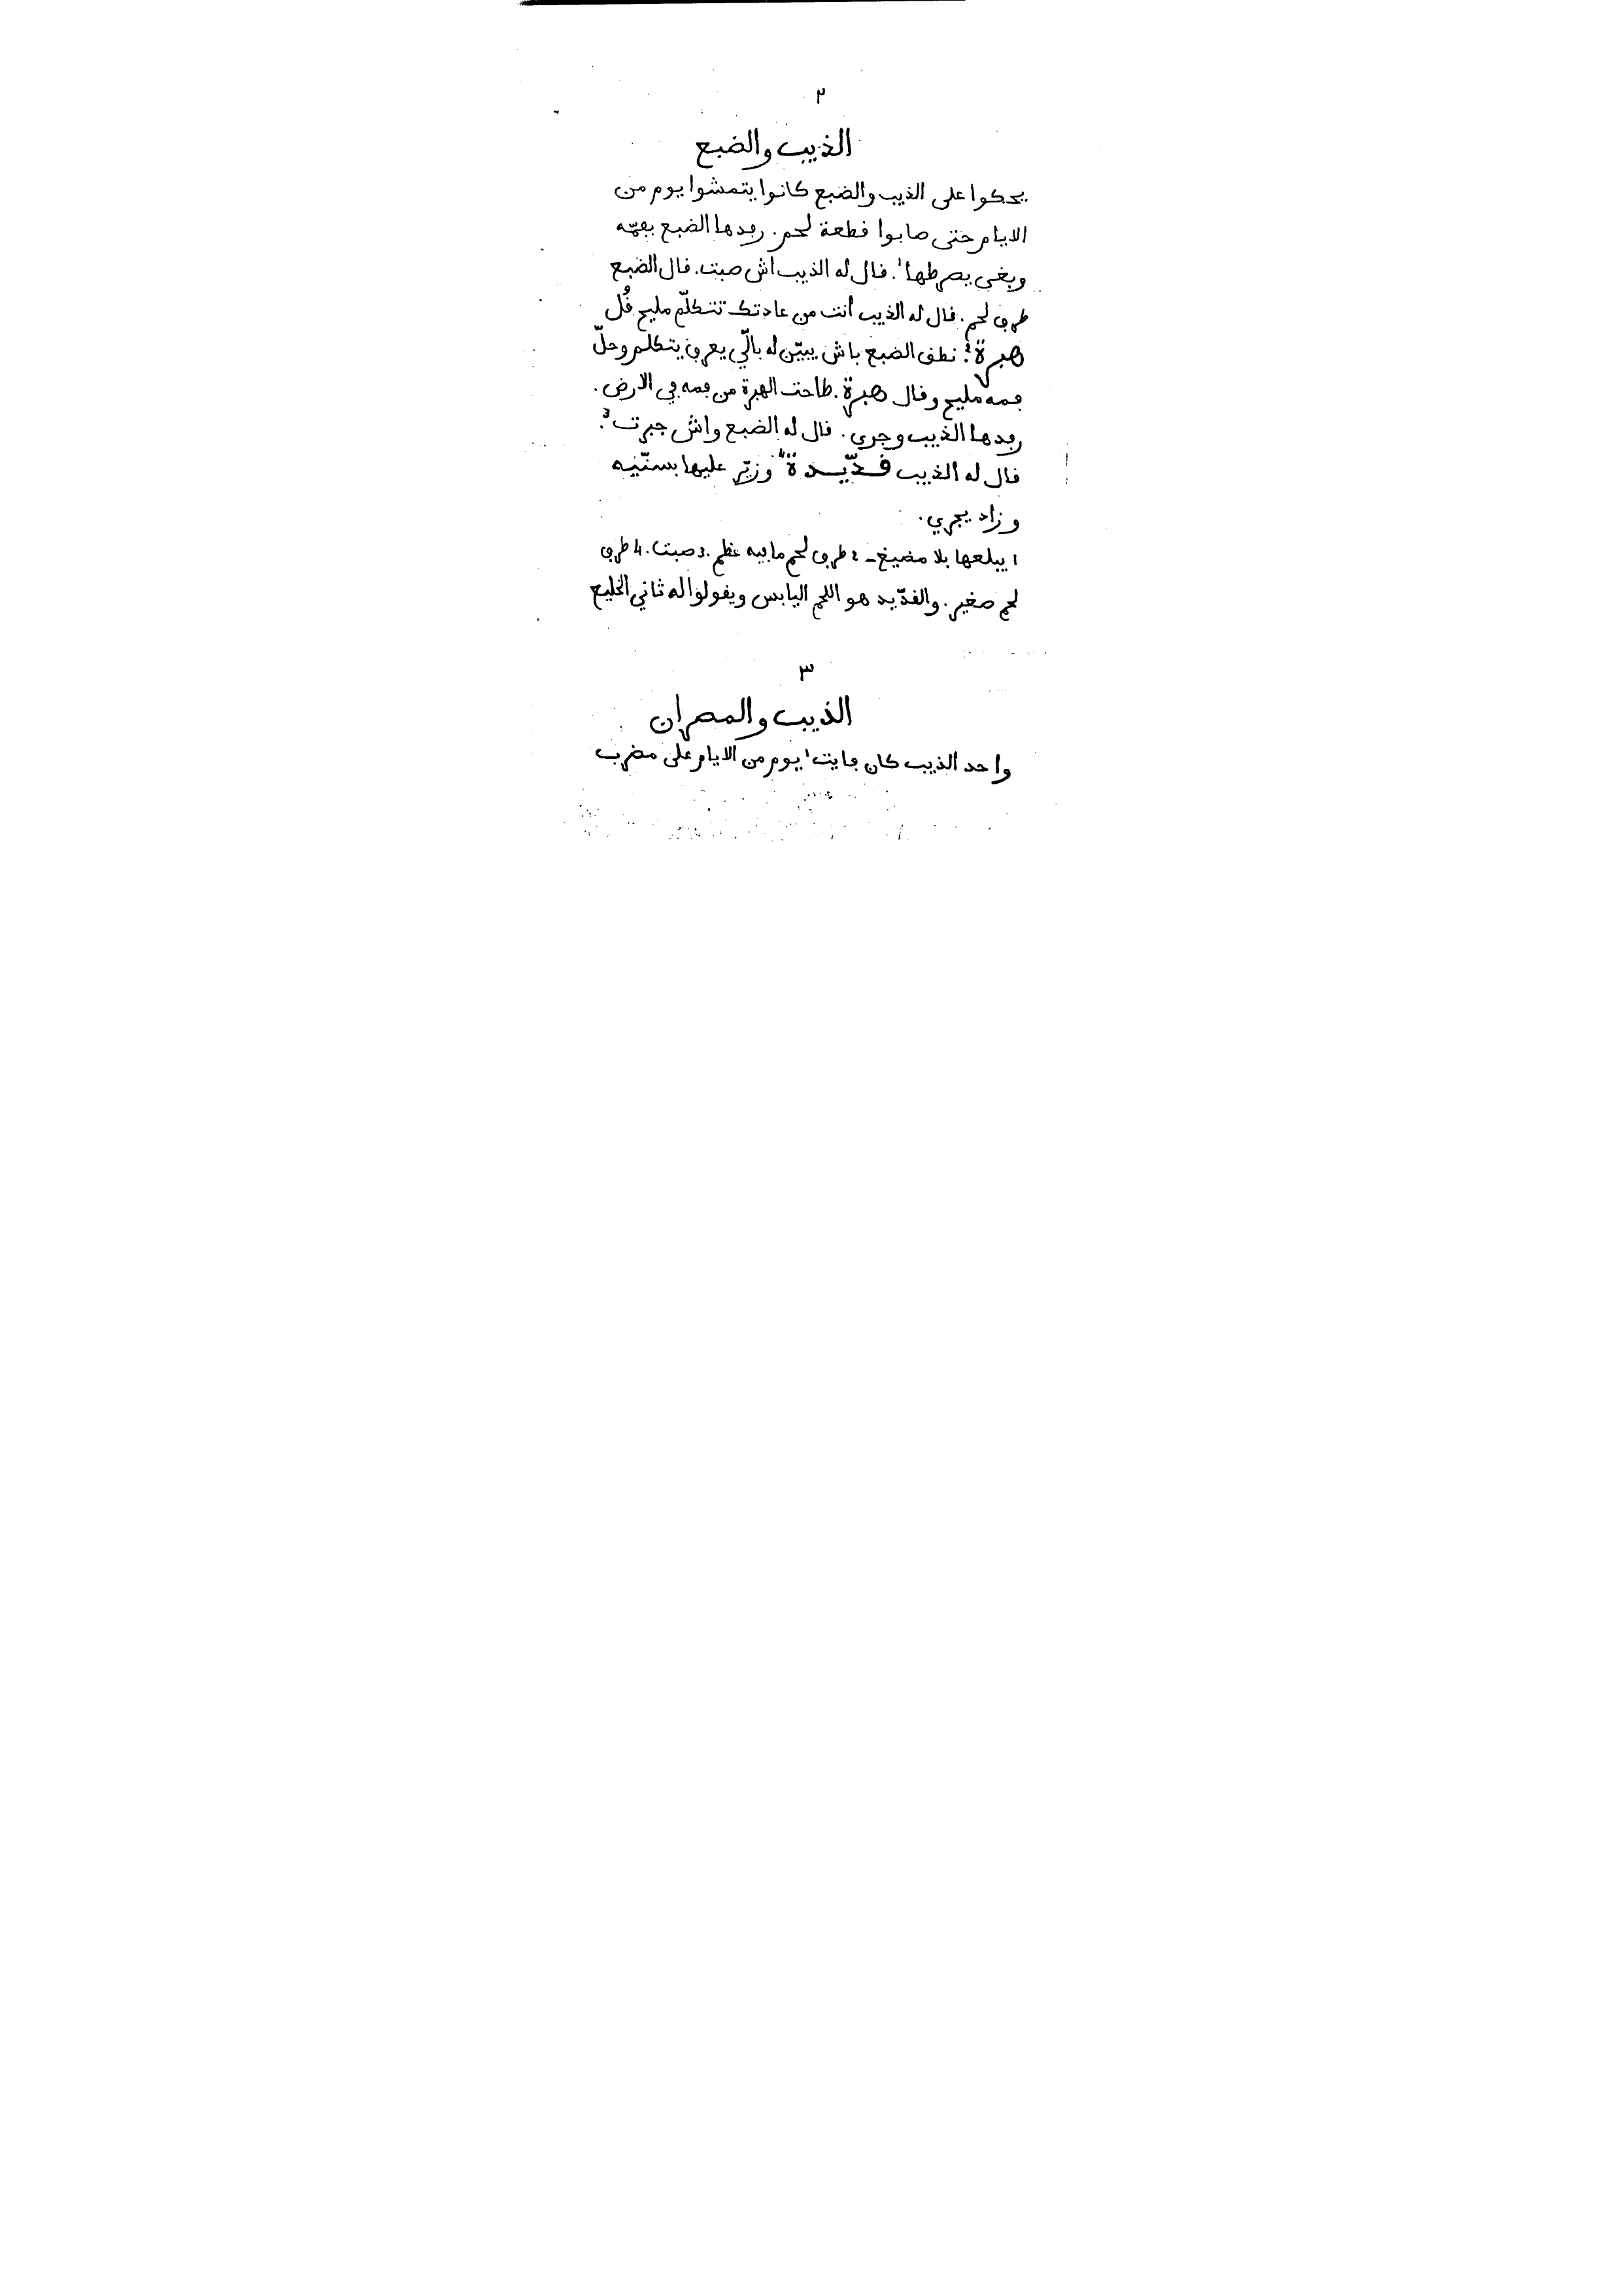 ٢
الذيب والضبع
يحكوا على الذيب والضبع كانوا يتمشوا يوم من
الايام حتى صابوا قطعة لحم. رفدها الضبع بفمّه
وبغى يصرطها¹. قال له الذيب اش صبت. قال الضبع
طرف لحم. قال له الذيب أنت من عادتك تتكلّم مليح قُل
هبرة². نطق الضبع باش يبيّن له بالّي يعرف يتكلم وحلّ
فمه مليح وقال هبرة. طاحت الهبرة من فمه في الارض.
رفدها الذيب وجرى. قال له الضبع واش جبرت³.
قال له الذيب قدّيدة⁴ وزيّر عليها بسنّيه
وزاد يجري.
1 يبلعها بلا مضيغ - 2 طرف لحم ما فيه عظم. 3 صبت. 4 طرف
لحم صغير. والقدّيد هو اللحم اليابس ويقولوا له ثاني الخليع
٣
الذيب والمصران
واحد الذيب كان فايت¹ يوم من الايام على مضرب